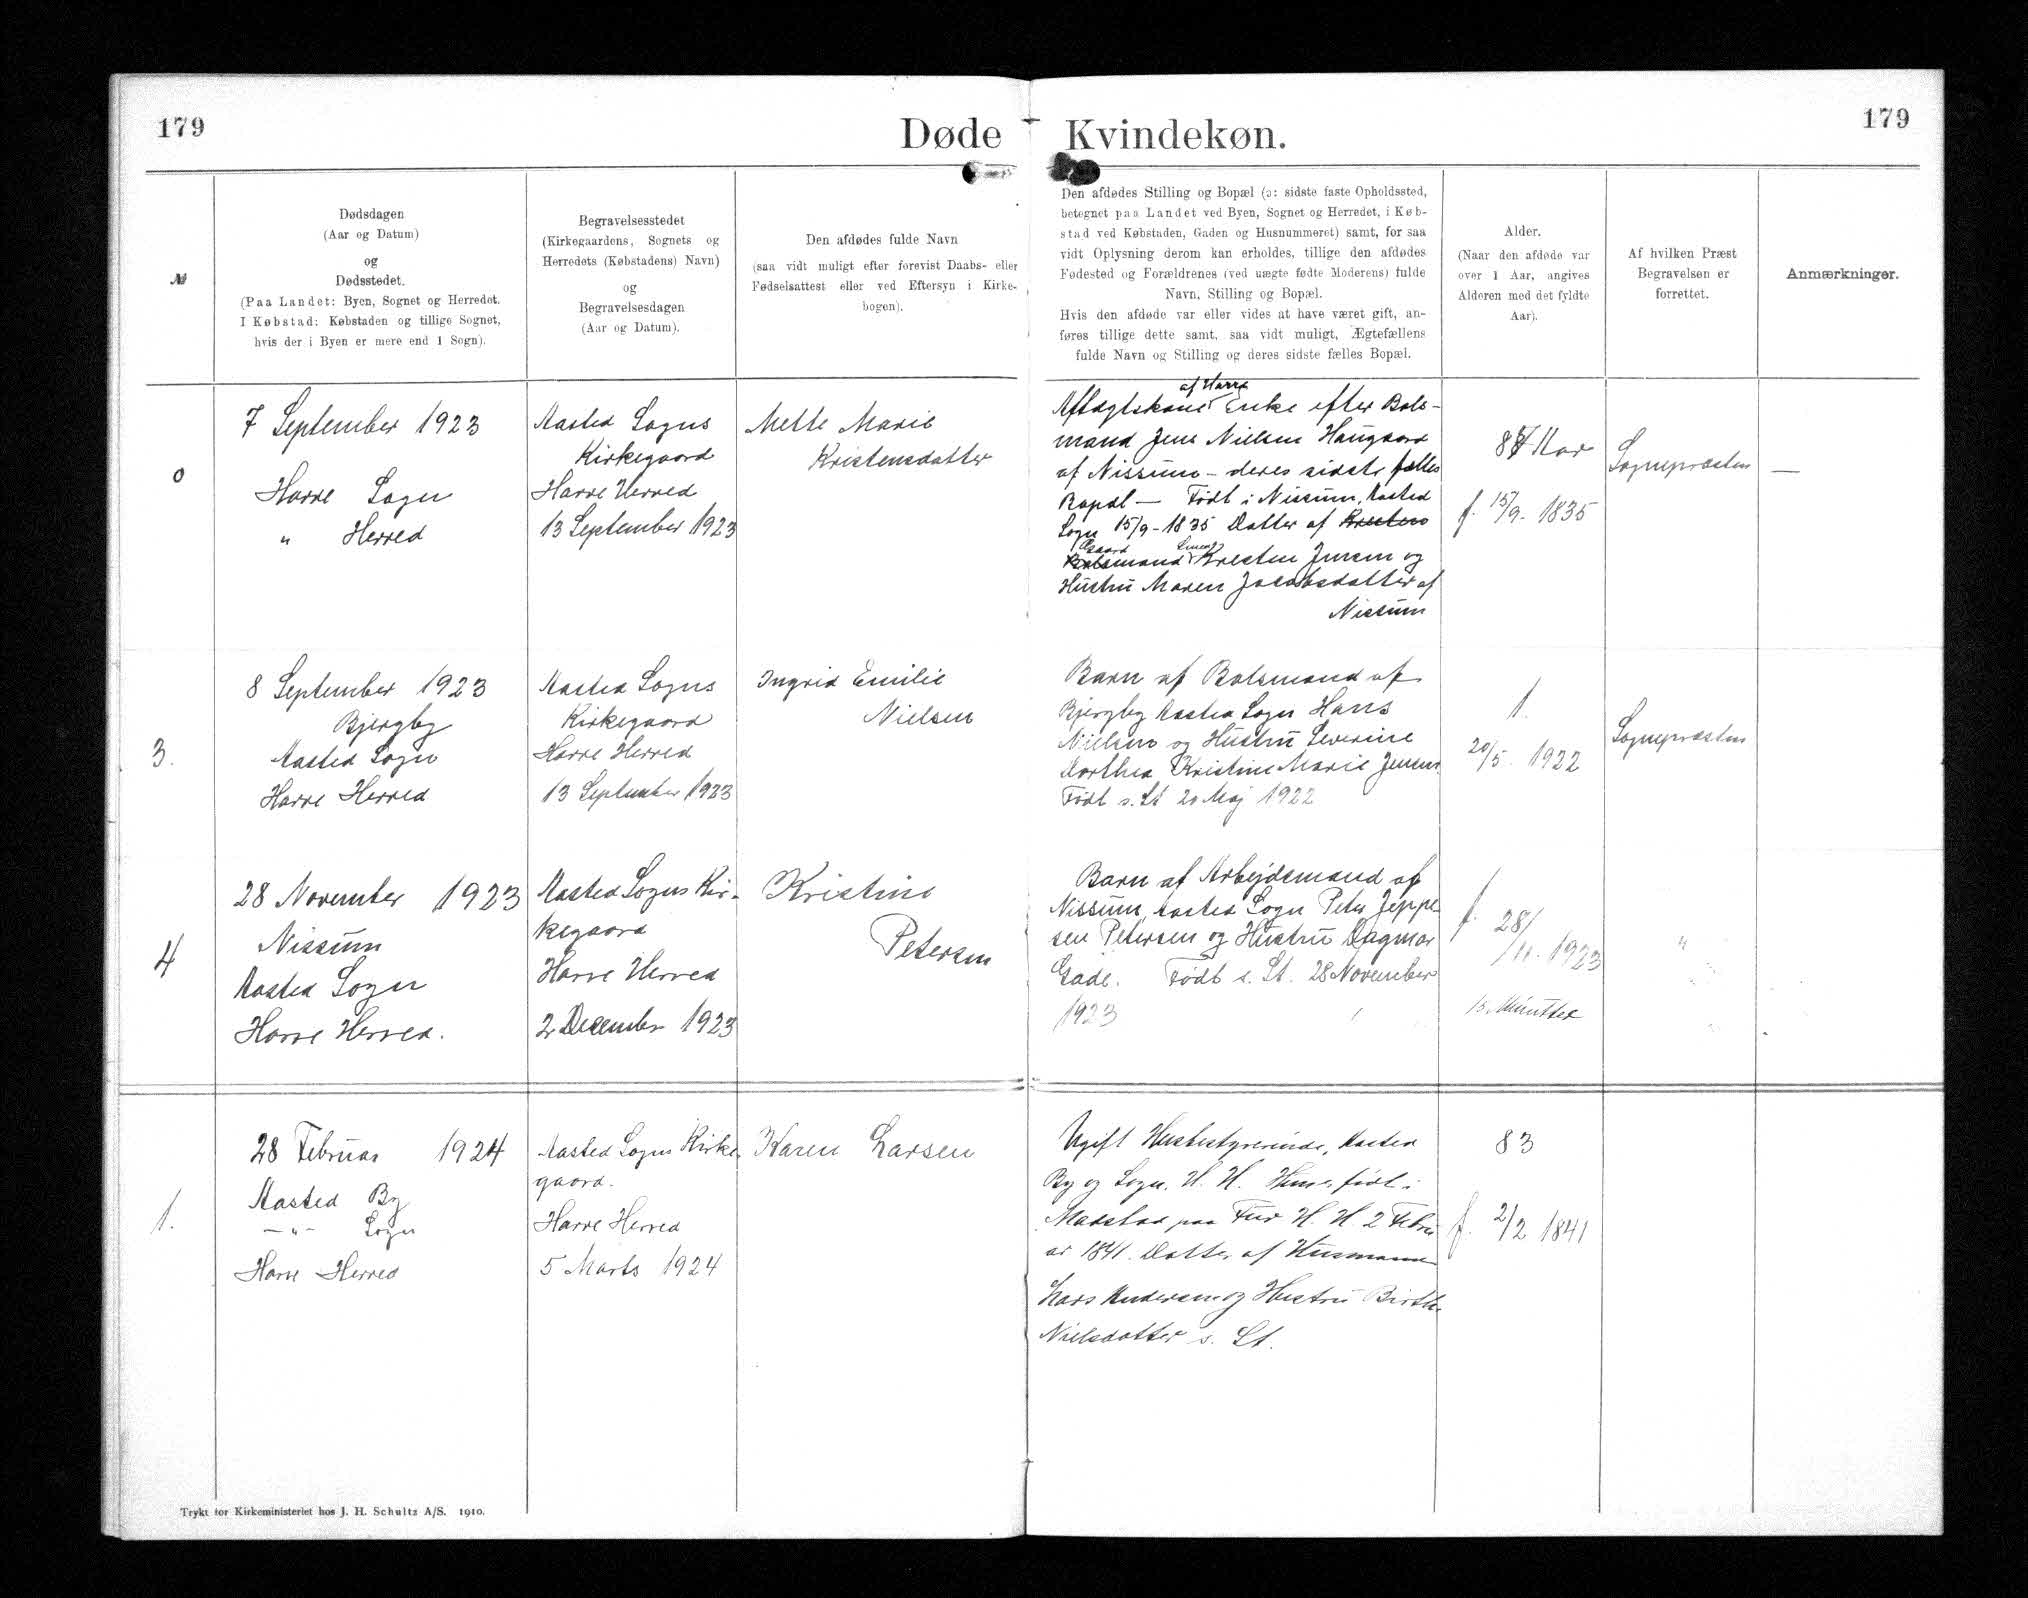 179
Døde
Kvindekøn.
179
№
Dødsdagen
(Aar og Datum)
og
Dødsstedet.
(Paa Landet: Byen, Sognet og Herredet.
I Købstad: Købstaden og tillige Sognet,
hvis der i Byen er mere end 1 Sogn).
Begravelsesstedet
(Kirkegaardens, Sognets og
Herredets (Købstadens) Navn)
og
Begravelsesdagen
(Aar og Datum).
Den afdødes fulde Navn
(saa vidt muligt efter forevist Daabs- eller
Fødselsattest eller ved Eftersyn i Kirke-
bogen).
Den afdødes Stilling og Bopæl (ɔ: sidste faste Opholdssted,
betegnet paa Landet ved Byen, Sognet og Herredet, i Køb-
stad ved Købstaden, Gaden og Husnummeret) samt, for saa
vidt Oplysning derom kan erholdes, tillige den afdødes
Fødested og Forældrenes (ved uægte fødte Moderens) fulde
Navn, Stilling og Bopæl.
Hvis den afdøde var eller vides at have været gift, an-
føres tillige dette samt, saa vidt muligt, Ægtefællens
fulde Navn og Stilling og deres sidste fælles Bopæl.
Alder.
(Naar den afdøde var
over 1 Aar, angives
Alderen med det fyldte
Aar).
Af hvilken Præst
Begravelsen er
forrettet.
Anmærkninger.
0
7 September 1923
Harre Sogn
" Herred
Aasted Sogns
Kirkegaard
Harre Herred
13 September 1923
Mette Marie
Kristensdatter
af Harre
Aftægtskone Enke efter Bols-
mand Jens Nielsen Haugaard
af Nissum - deres sidste fælles
Bopæl — Født i Nissum, Aasted
Sogn 15/9 - 1835 Datter af Kresten
Gaard
Bolsmand Kresten Jensen og
Hustru Maren Jacobsdatter af
Nissum
87 Aar
f. 15/9 - 1835
Sognepræsten
—
3.
8 September 1923
Bjergby
Aasted Sogn
Harre Herred
Aasted Sogns
Kirkegaard
Harre Herred
13 September 1923
Ingrid Emilie
Nielsen
Barn af Bolsmand af
Bjergby Aasted Sogn Hans
Nielsen og Hustru Severine
Dorthea Kristine Marie Jensen
Født s. St 20 Maj 1922
1.
20/5. 1922
Sognepræsten
4
28 November 1923
Nissum
Aasted Sogn
Harre Herred.
Aasted Sogns Kir-
kegaard
Harre Herred
2 December 1923
Kristine
Petersen
Barn af Arbejdsmand af
Nissum, Aasted Sogn Peter Jeppe-
sen Petersen og Hustru Dagmar
Gade. Født s. St. 28 November
1923
f. 28/11. 1923
15 Minutter
"
1.
28 Februar 1924
Aasted By
—"— Sogn
Harre Herred
Aasted Sogns Kirke-
gaard.
Harre Herred
5 Marts 1924
Karen Larsen
Ugift Husbestyrerinde, Aasted
By og Sogn. H. H. født i
Madsbad paa Fur H. H 2 Febru
ar 1841. Datter af Husmand
Lars Andersen og Hustru Birthe
Nielsdatter s. St.
83
f. 2/2 1841
Trykt for Kirkeministeriet hos J. H. Schultz A/S. 1910.